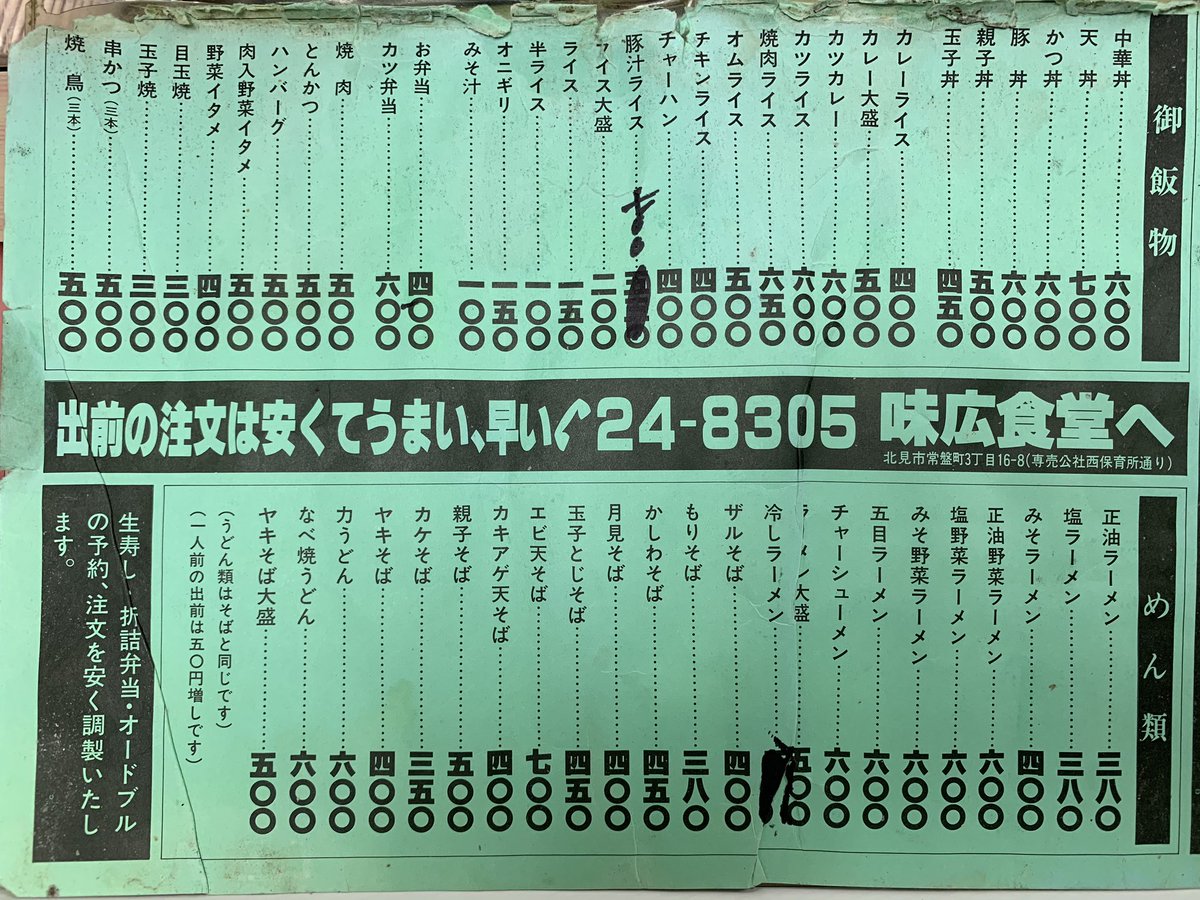 御飯物
中華丼……六〇〇
天丼……七〇〇
かつ丼……六〇〇
豚丼……六〇〇
親子丼……五〇〇
玉子丼……四五〇
カレーライス……四〇〇
カレー大盛……五〇〇
カツカレー……六〇〇
カツライス……六〇〇
焼肉ライス……六五〇
オムライス……五〇〇
チキンライス……四〇〇
チャーハン……四〇〇
豚汁ライス……
ライス大盛……二〇〇
ライス……一五〇
半ライス……一〇〇
オニギリ……一五〇
みそ汁……一〇〇
お弁当……四〇〇
カツ弁当……六〇〇
焼肉……五〇〇
とんかつ……五〇〇
ハンバーグ……五〇〇
肉入野菜イタメ……五〇〇
野菜イタメ……四〇〇
目玉焼……三〇〇
玉子焼……三〇〇
串かつ(三本)……五〇〇
焼鳥(三本)……五〇〇
出前の注文は安くてうまい、早い 24-8305 味広食堂へ
北見市常盤町3丁目16-8(専売公社西保育所通り)
めん類
正油ラーメン……三八〇
塩ラーメン……三八〇
みそラーメン……四〇〇
正油野菜ラーメン……六〇〇
塩野菜ラーメン……六〇〇
みそ野菜ラーメン……六〇〇
五目ラーメン……六〇〇
チャーシューメン……六〇〇
ラーメン大盛……五〇〇
冷しラーメン……
ザルそば……四〇〇
もりそば……三八〇
かしわそば……四五〇
月見そば……四〇〇
玉子とじそば……四五〇
エビ天そば……七〇〇
カキアゲ天そば……四〇〇
親子そば……五〇〇
カケそば……三五〇
ヤキそば……四〇〇
力うどん……六〇〇
なべ焼うどん……六〇〇
ヤキそば大盛……五〇〇
(うどん類はそばと同じです)
(一人前の出前は五〇円増しです)
生寿し、折詰弁当・オードブル
の予約、注文を安く調製いたし
ます。